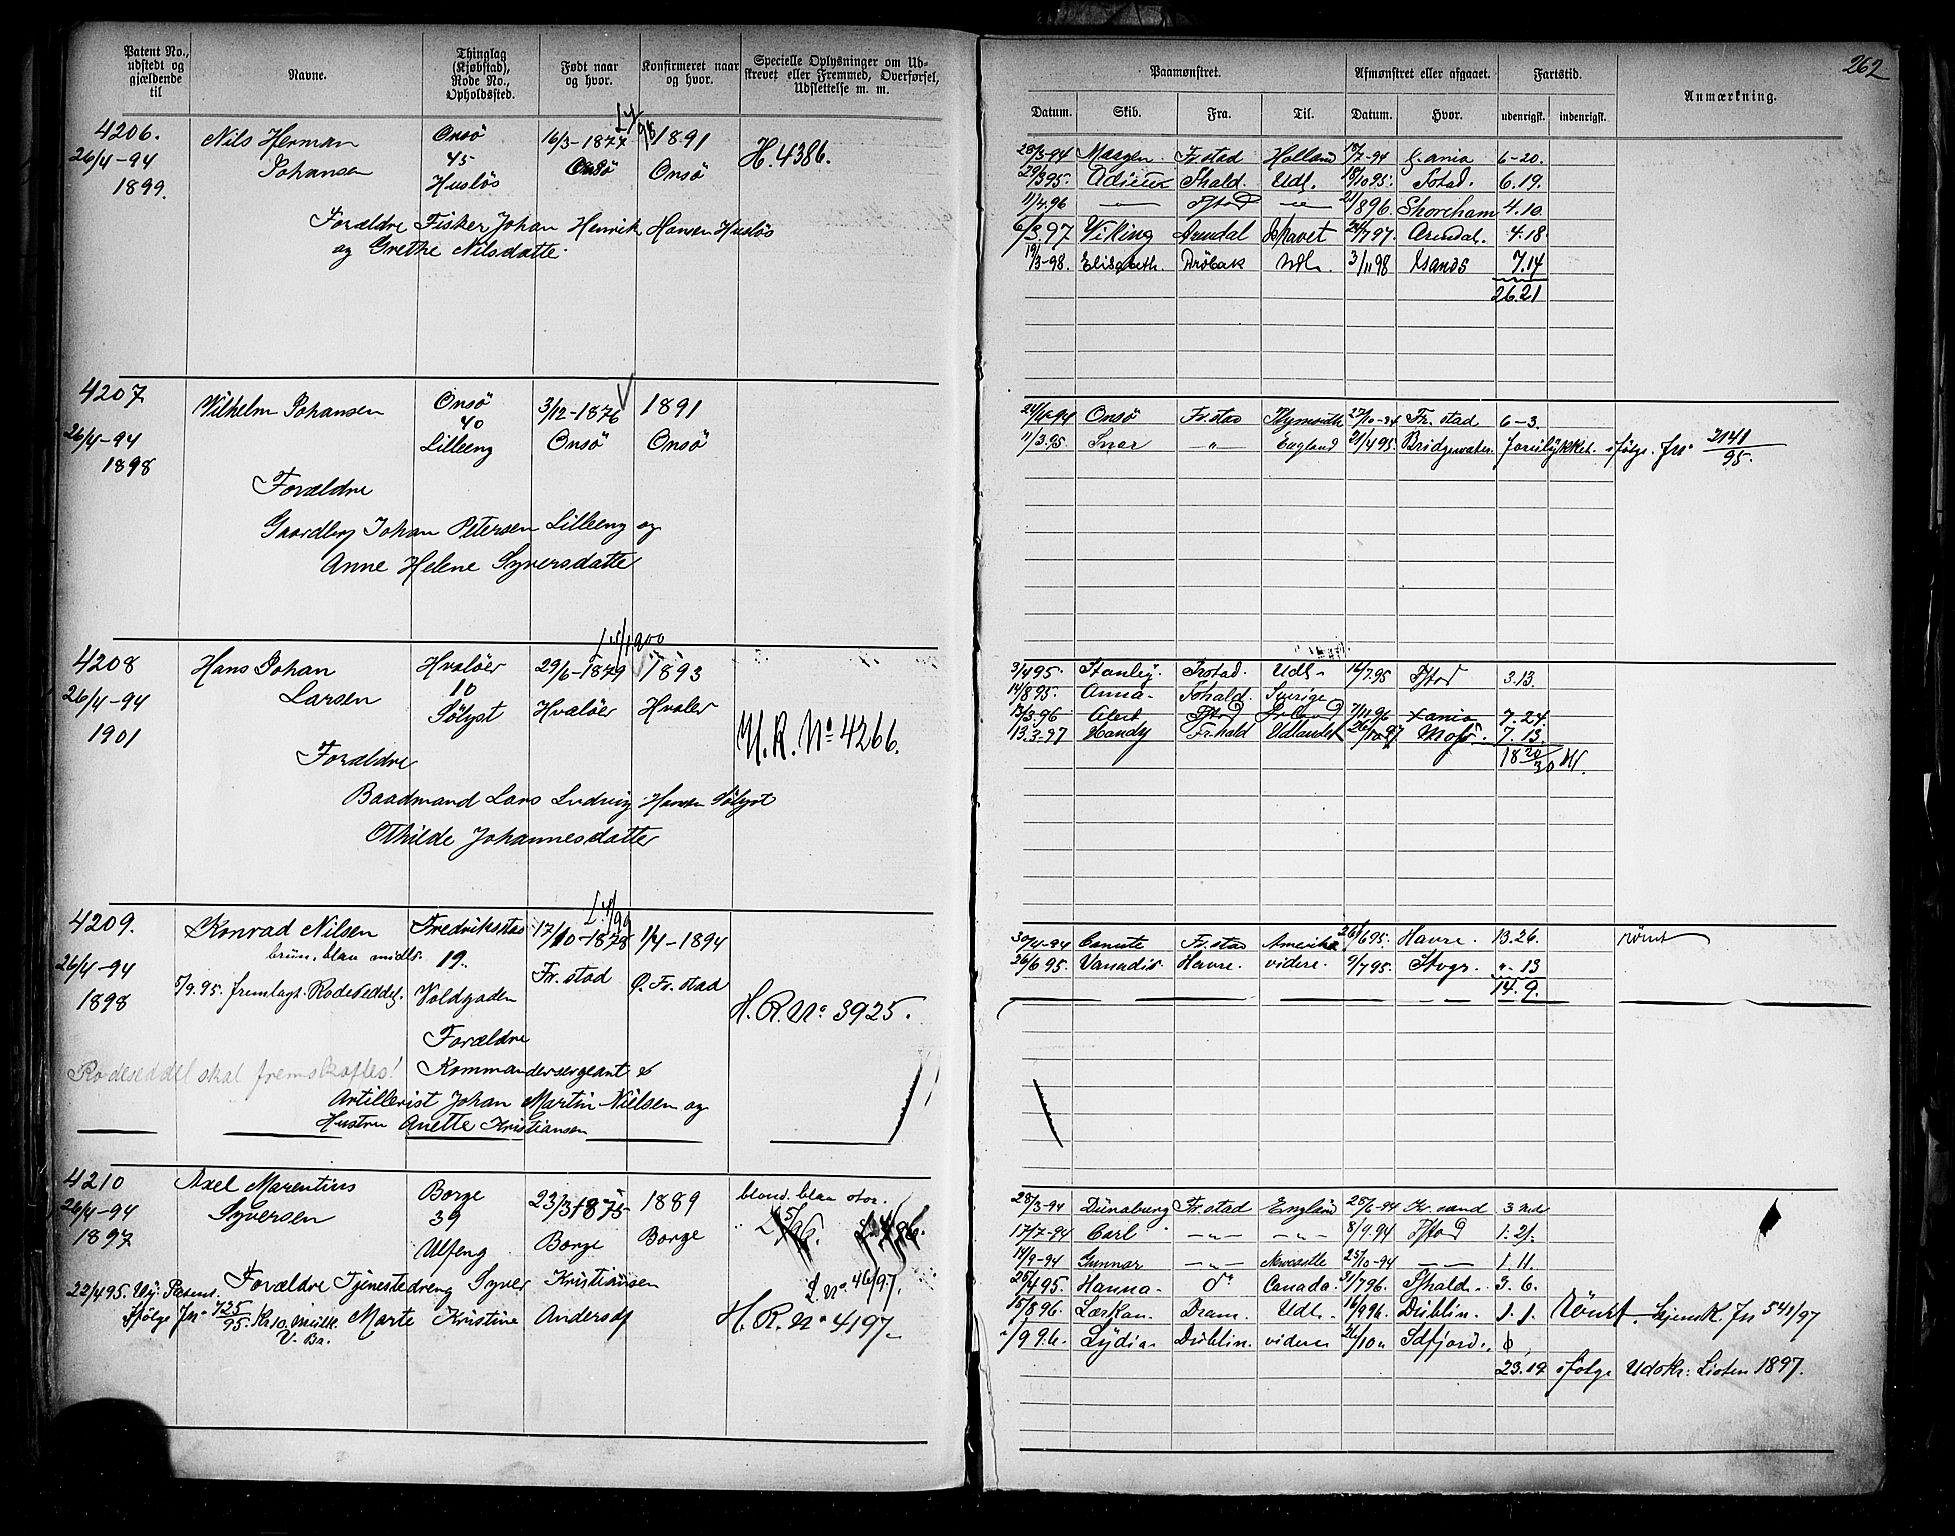 262
Patent No., udstedt og gjældende til
Navne.
Thinglag (Kjøbstad), Rode No., Opholdssted.
Født naar og hvor.
Konfirmeret naar og hvor.
Specielle Oplysninger om Udskrevet eller Fremmed, Overførsel, Udslettelse m. m.
Paamønstret.
Afmønstret eller afgaaet.
Fartstid.
Anmærkning.
Datum. Skib. Fra. Til. Datum. Hvor. udenrigsk. indenrigsk.
4206. Nils Herman Onsö 16/3-1877 1891 H. 4386.
26/4-94 Johansen 45 Onsö Onsö
1899. Huslös
Forældre Fisker Johan Henrik Hansen Huslös
og Grethe Nilsdatte.
28/3-94 Fr.stad Holland 6-20.
29/3 95. Udl. 18/10 95. 6.19.
11/4.96 Fstad 21/8 96. Shoreham 4.10
6/3.97 Viking Arendal 24/7 97. Arendal. 4.18
19/3-98. Elisabeth. Dröbak Udl. 3/11 98 7.14
26.21
4207 Vilhelm Johansen Onsö 3/12-1876 1891
26/4-94 40
1898 Lilleeng Onsö Onsö
Forældre
Gaardbrg Johan Petersen Lilleeng og
Anne Helene Syversdatte
24/4-94 Onsö Fr.stad Plymouth 27/10-94 Fr. stad 6-3.
11/3.95. Snar " England 21/4 95. Bridgewater. Forulykket. ifölge. Jns 2141/95.
4208 Hans Johan Hvalöer 29/6-1879 1893
26/4-94 Larsen 10
1901 Sölyst Hvalöer Hvaler
H. R. No 4266.
Forældre
Baadmand Lars Ludvig Hansen Sölyst
Othilde Johannesdatter
3/4 95. Stanley. Frstad. Udl. 16/7.95 Fstod 3.13.
14/8 95. Anna. Fshald. Sverige
13/3.96 Alert Fstod 7/11 96 Xania 7.24.
13.3.97 Handy Fr.hald Udlandet 26/10 97 Moss. 7.13.
18 20/30
4209. Konrad Nilsen Fredriksstad 17/10-1878 1/4-1894
brün. blaa midls. 19.
26/4-94 Fr. stad Ø. Fr. stad
5/9.95. fremlagt. Rodeseddel. Voldgaden
1898 H. R. No 3925.
Forældre
Rodeseddel skal fremskaffes! Kommandersergeant &
Artillerist Johan Martin Nilsen og
Hustru Anette Kristiansen
30/4-94 Canute Fr.stad Amerika 26/6 95. Havre. 13.26. römt
26/6 95. Vanadis. Havre. videre. 9/7 95. Stvgr. ". 13
14. 9.
4210 Axel Marentius Borge 23/3 1875 1889 blond. blaa stor.
26/4-94 Syversen 39
1897 Ulfeng Borge Borge
22/4 95. Ny. Patent. Forældre Tjenestedreng Syver Kristiansen
L. No 46/97.
ifölge Jns 725/95. Marte Kristine Andersdt H. R. No 4197.
28/3-94 Dünaburg Fr.stad England 25/6-94 Kr. sand 3
17/7-94 Carl -"- -"- 8/9.94 Fstod 1.21.
14/9-94 Gunnar Newcastle 25/10-94 1.11.
25/4 95. Hanna. Canada. 31/7 96. Fhald. 3.6.
15/8 96. Dram. Udl. 16/9 96. Düblin. 1.1. Römt. Hjemk. Jns 541/97
/9 96. Lydia. Düblin. videre 21/10 " Idfjord.
23.19 ifölge Udskr: Listen 1897.